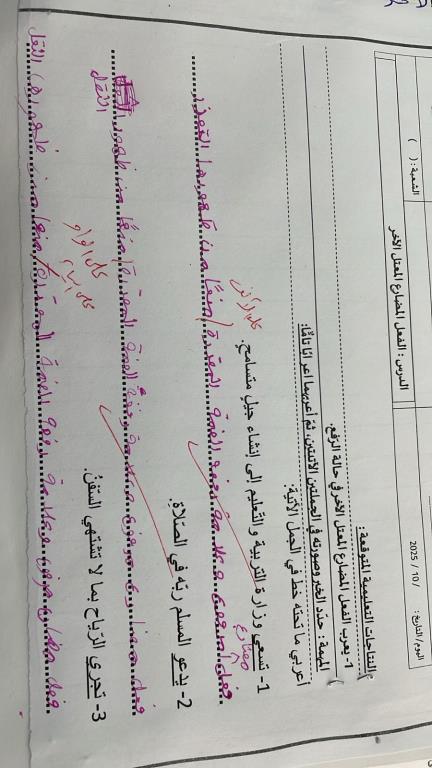 اليوم/التاريخ: / 10 / 2025
الدرس : الفعل المضارع المعتل الآخر
الشعبة : ( )
النتاجات التعليمية المتوقعة :
1- يعرب الفعل المضارع المعتل الآخر في حالة الرفع.
المهمة : حدد الخبر وصورته في الجملتين الآتيتين، ثم اعربهما اعرابًا تامًا:
أعربي ما تحته خط في الجمل الآتية.
1- تسعى وزارة التربية والتعليم إلى إنشاء جيل متسامح.
فعل مضارع مرفوع وعلامة رفعه الضمة المقدرة منعًا من ظهورها التعذر
على الألف
2- يدعو المسلم ربّه في الصّلاةِ.
فعل مضارع مرفوع وعلامة رفعه الضمة المقدرة منعًا من ظهورها الثقل
على الواو
3- تجري الرّياح بما لا تشتهي السّفنُ.
على الياء
فعل مضارع مرفوع وعلامة رفعه الضمة المقدرة منعا من ظهورها الثقل